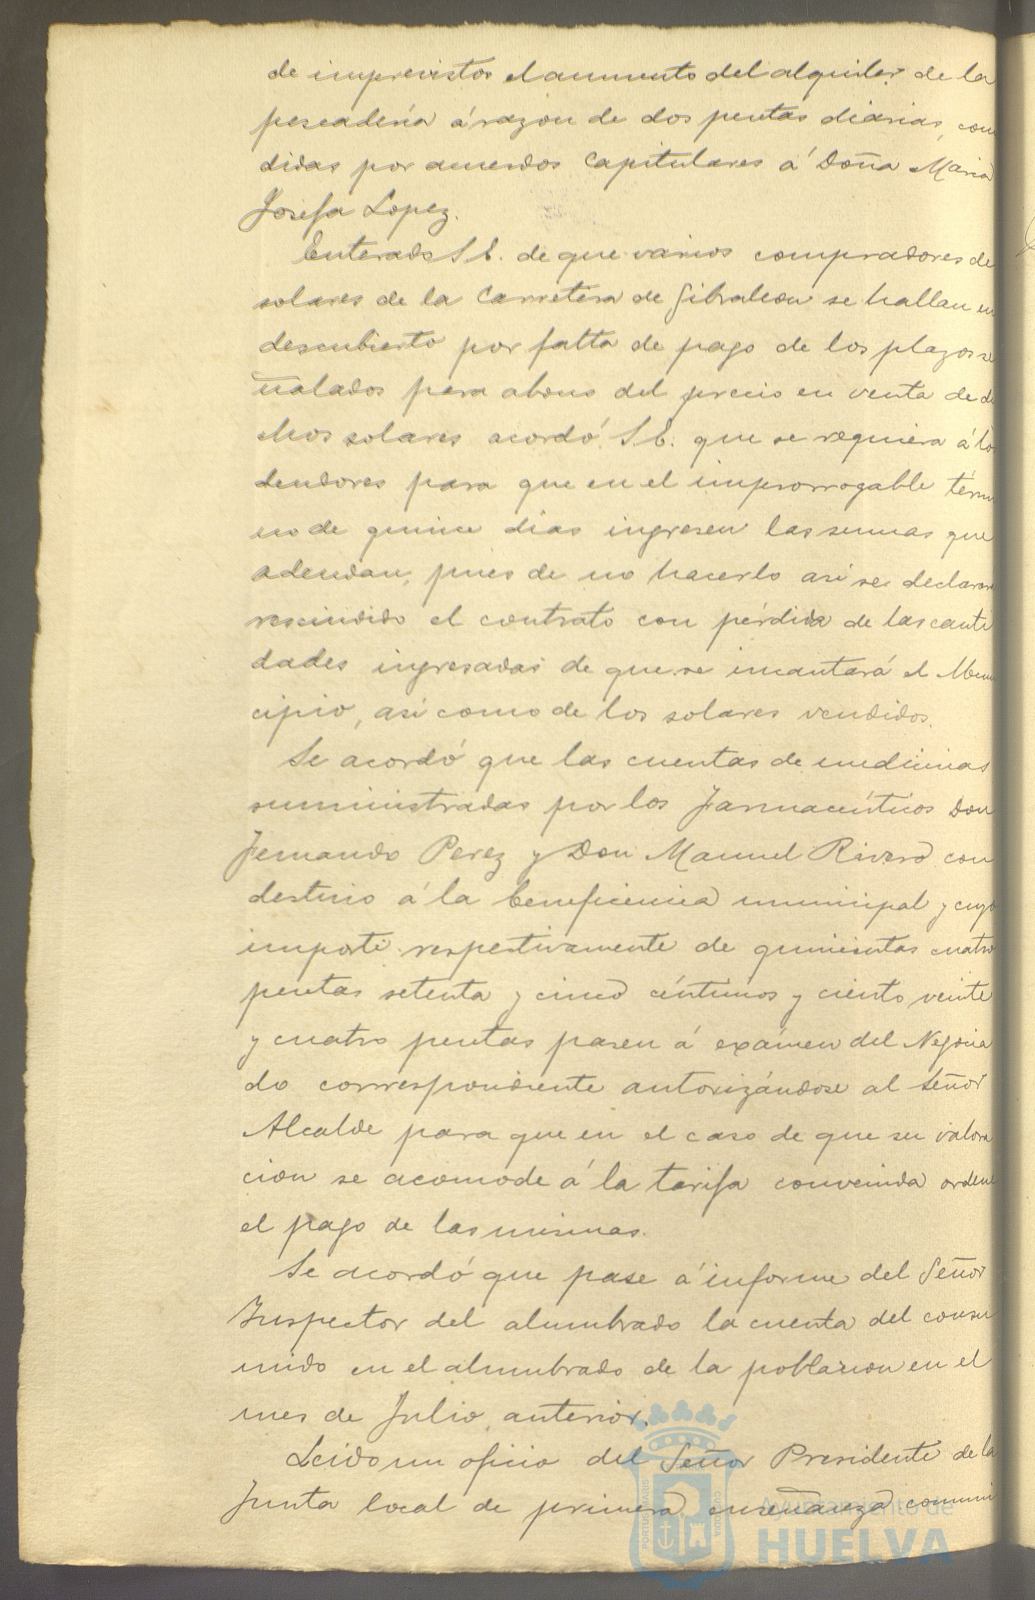 de imprevistos el aumento del alquiler de la
pescadería á razón de dos pesetas diarias, con
didas por acuerdos Capitulares á Doña Maria
Josefa Lopez.
Enterado S.E. de que varios compradores de
solares de la Carretera de Gibraleon se hallan en
descubierto por falta de pago de los plazos se
ñalados para abono del precio en venta de di
chos solares acordó S.E. que se requiera á los
deudores para que en el improrrogable térmi
no de quince dias ingresen las sumas que
adeudan, pues de no hacerlo asi se declarará
rescindido el contrato con pérdida de las canti
dades ingresadas de que se incautará el Muni
cipio, asi como de los solares vendidos.
Se acordó que las cuentas de medicinas
suministradas por los farmaceúticos Don
Fernando Perez y Don Manuel Rivero con
destino á la beneficencia municipal y cuyo
importe respectivamente de quinientas cuatro
pesetas setenta y cinco céntimos y ciento veinte
y cuatro pesetas pasen á exámen del Negocia
do correspondiente autorizándose al Señor
Alcalde para que en el caso de que su valora
cion se acomode á la tarifa convenida ordene
el pago de las mismas.
Se acordó que pase á informe del Señor
Inspector del alumbrado la cuenta del consu
mido en el alumbrado de la poblacion en el
mes de Julio anterior.
Leido un oficio del Señor Presidente de la
Junta local de primera enseñanza comuni
Ayuntamiento de
HUELVA